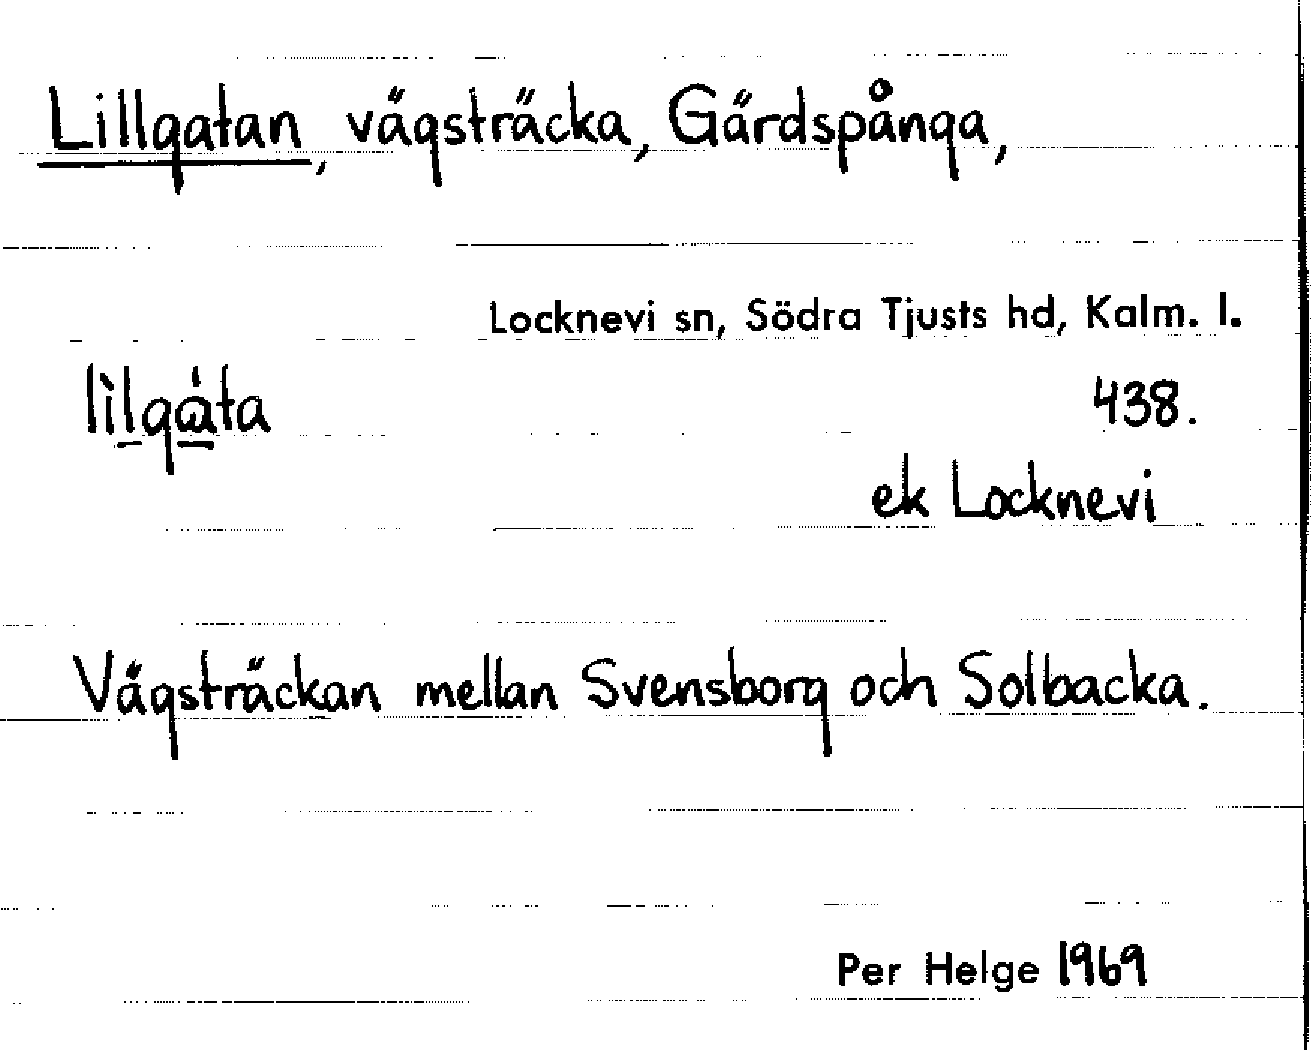 Lillgatan, vägsträcka, Gärdspånga,
Locknevi sn, Södra Tjusts hd, Kalm. l.
lìl̲gɷ̲́ta 438.
ek Locknevi
Vägsträckan mellan Svensborg och Solbacka.
Per Helge 1969